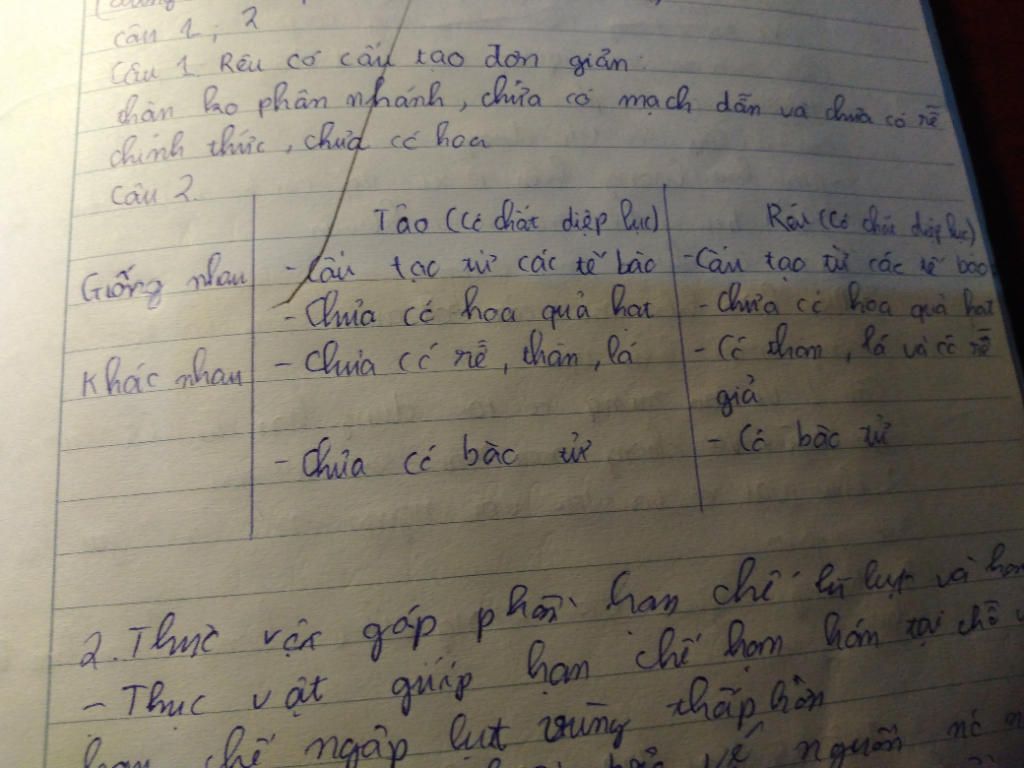 câu 1, 2
Câu 1. Rêu có cấu tạo đơn giản.
thân ko phân nhánh, chưa có mạch dẫn và chưa có rễ
chính thức, chưa có hoa
Câu 2.
Tảo (Có chất diệp lục)
Rêu (Có chất diệp lục)
Giống nhau
- Cấu tạo từ các tế bào
- Cấu tạo từ các tế bào
- Chưa có hoa quả hạt
- Chưa có hoa quả hạt
Khác nhau
- Chưa có rễ, thân, lá
- Có thân, lá và có rễ
giả
- Chưa có bào tử
- Có bào tử
2. Thực vật góp phần hạn chế lũ lụt và hạn
- Thực vật giúp hạn chế hạn hán tại chỗ
hạn chế ngập lụt vùng thấp hơn
về nguồn